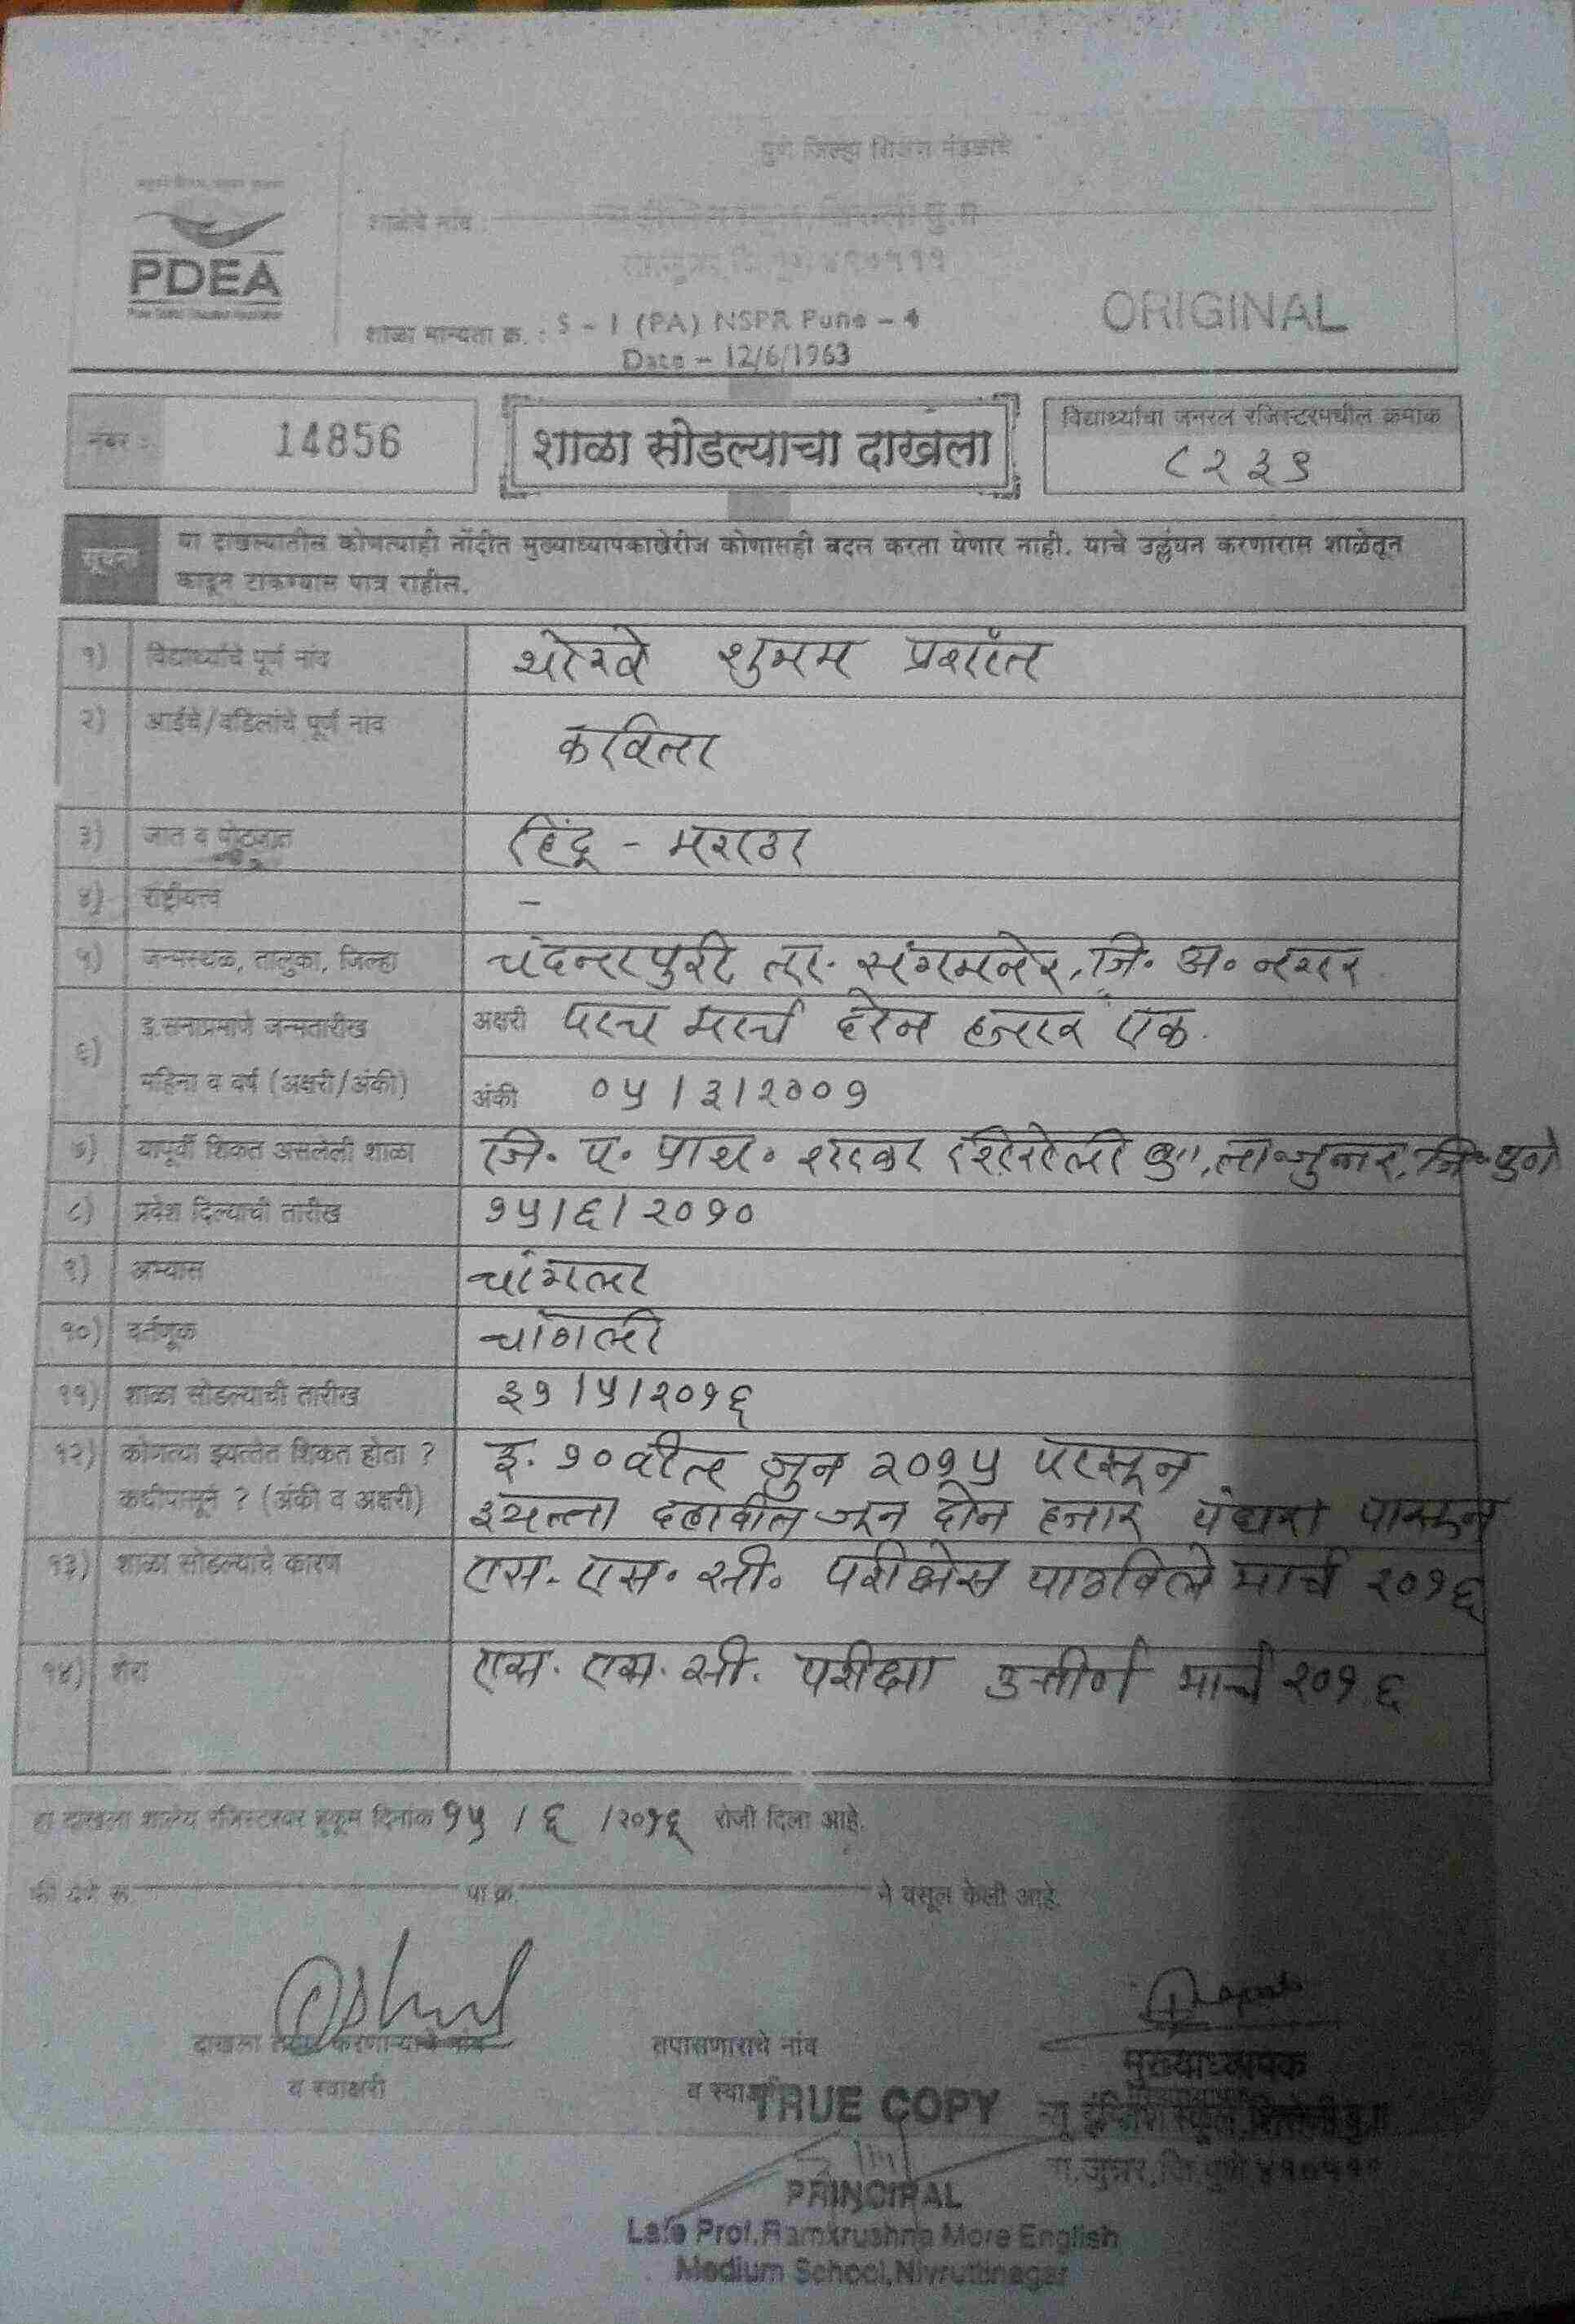 पुणे जिल्हा शिक्षण मंडळाचे
PDEA
शाळेचे नांव :
शाळा मान्यता क्र. : S - 1 (PA) NSPR Pune - 4
Date - 12/6/1963
ORIGINAL
नंबर : 14856
शाळा सोडल्याचा दाखला
विद्यार्थ्यांचा जनरल रजिस्टरमधील क्रमांक
८२३९
सूचना या दाखल्यातील कोणत्याही नोंदीत मुख्याध्यापकाखेरीज कोणासही बदल करता येणार नाही. याचे उल्लंघन करणारास शाळेतून
काढून टाकण्यास पात्र राहील.
१) विद्यार्थ्याचे पूर्ण नांव थोरवे शुभम प्रशांत
२) आईचे/वडिलांचे पूर्ण नांव कविता
३) जात व पोटजात हिंदू - मराठा
४) राष्ट्रीयत्त्व -
५) जन्मस्थळ, तालुका, जिल्हा चंदनापुरी ता. संगमनेर, जि. अ. नगर
६) इ.सनाप्रमाणे जन्मतारीख अक्षरी पाच मार्च दोन हजार एक.
महिना व वर्ष (अक्षरी/अंकी) अंकी ०५/३/२००१
७) यापूर्वी शिकत असलेली शाळा जि. प. प्राथ. शाळा शिरोली बु॥, ता. जुन्नर, जि. पुणे
८) प्रवेश दिल्याची तारीख १५/६/२०१०
९) अभ्यास चांगला
१०) वर्तणूक चांगली
११) शाळा सोडल्याची तारीख ३१/५/२०१६
१२) कोणत्या इयत्तेत शिकत होता ? इ. १० वीत जुन २०१५ पासून
कधीपासून ? (अंकी व अक्षरी) इयत्ता दहावीत जून दोन हजार पंधरा पासून
१३) शाळा सोडल्याचे कारण एस. एस. सी. परीक्षेस पाठविले मार्च २०१६
१४) शेरा एस. एस. सी. परीक्षा उत्तीर्ण मार्च २०१६
हा दाखला शालेय रजिस्टरवर हुकूम दिनांक १५ / ६ / २०१६ रोजी दिला आहे.
फी येणे रू. पा.क्र. ने वसूल केली आहे.
दाखला तयार करणाऱ्याचे नांव
व स्वाक्षरी
तपासणाराचे नांव
व स्वाक्षरी
मुख्याध्यापक
न्यू इंग्लिश स्कूल, शिरोली बु॥
ता. जुन्नर, जि. पुणे ४१०५११
TRUE COPY
PRINCIPAL
Late Prof. Ramkrushna More English
Medium School, Nivruttinagar